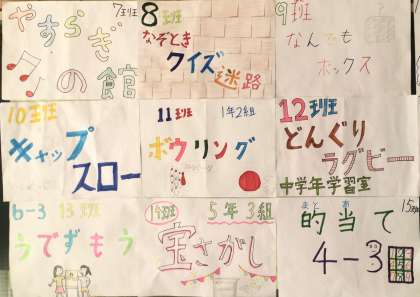 7班
やすらぎ
の館
8班
なぞとき
クイズ
迷路
9班
なんでも
ボックス
10班
キャップ
スロー
11班
1年2組
ボウリング
12班
どんぐり
ラグビー
中学年学習室
6-3 13班
うでずもう
14班
5年3組
宝さがし
15班
まと あ
的当て
4-3